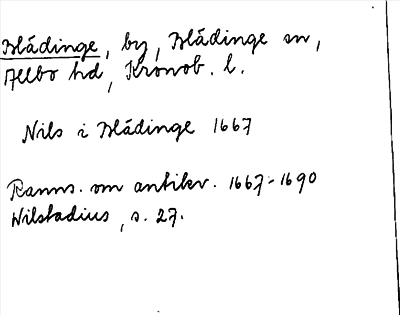 Blädinge, by, Blädinge sn,
Allbo hd, Kronob. l.
Nils i Blädinge 1667
Ranns. om antikv. 1667-1690
Wilstadius, s. 27.